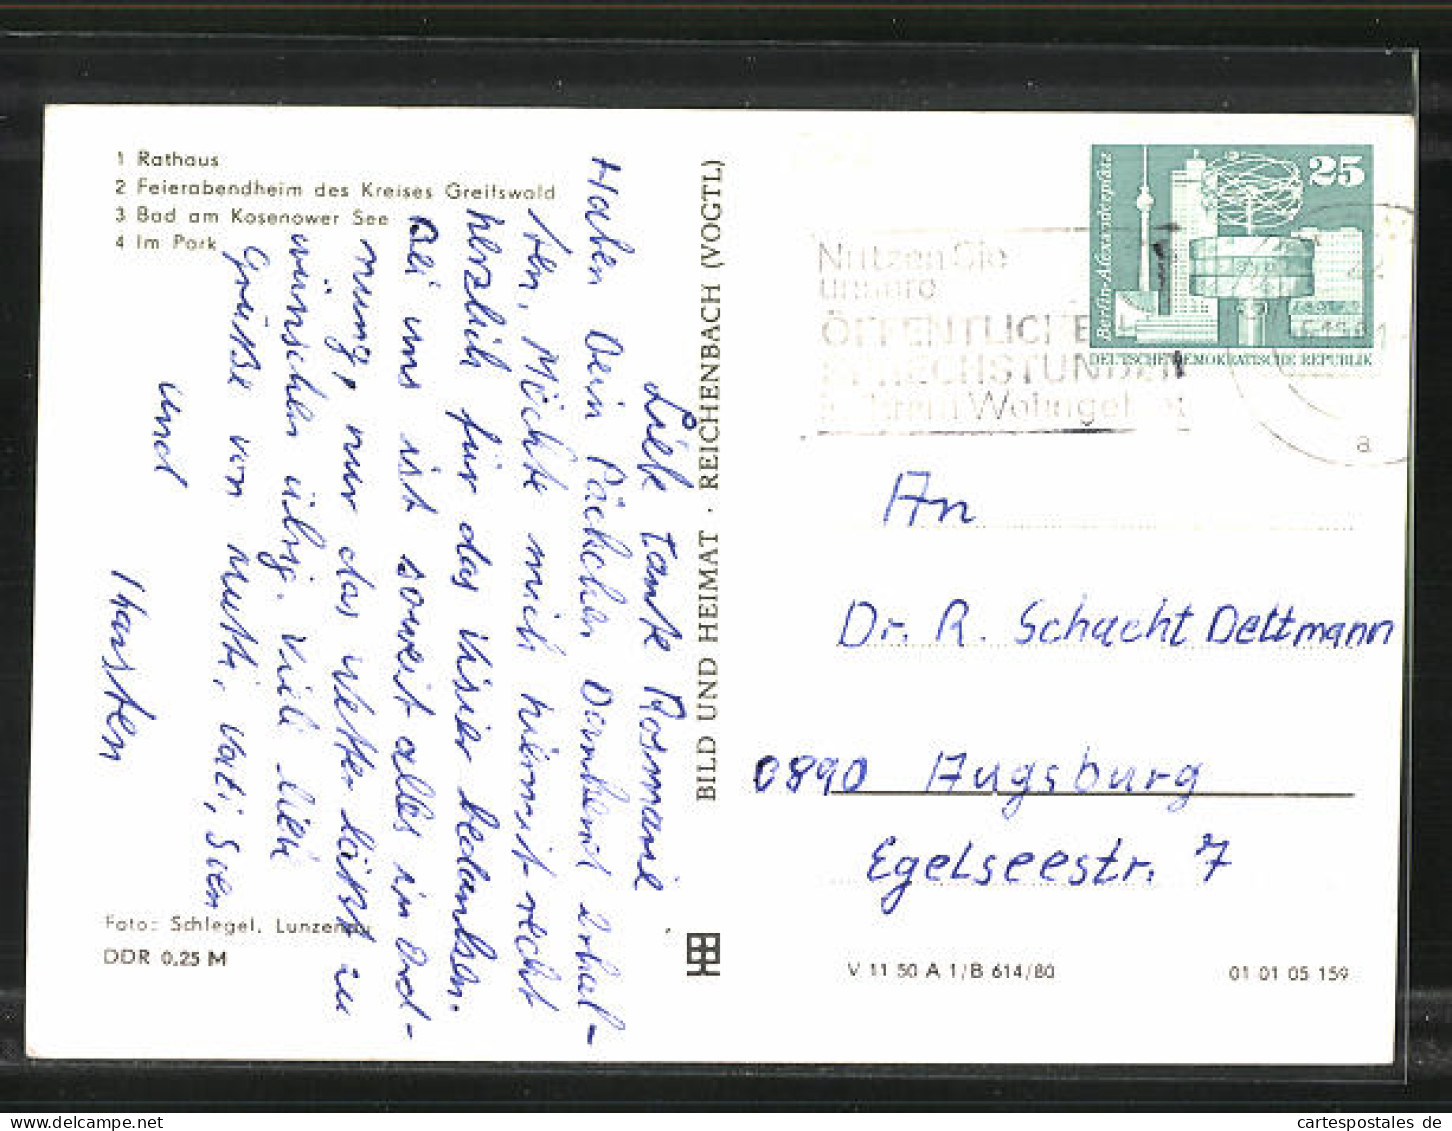 1 Rathaus
2 Feierabendheim des Kreises Greifswald
3 Bad am Kosenower See
4 Im Park
Liebe Tante Rosmarie
Haben Dein Päckchen dankend erhal-
ten, Möchte mich hiermit recht
herzlich für das Visier bedanken.
Bei uns ist soweit alles in Ord-
nung, nur das Wetter lässt zu
wünschen übrig. Viele liebe
Grüße von Mutti, Vati, Sven
und
Thorsten
Foto: Schlegel, Lunzenau
DDR 0,25 M
BILD UND HEIMAT · REICHENBACH (VOGTL)
Berlin-Alexanderplatz
25
DEUTSCHE DEMOKRATISCHE REPUBLIK
Nutzen Sie
unsere
ÖFFENTLICHEN
SPRECHSTUNDEN
in Ihrem Wohngebiet
22
a
An
Dr. R. Schacht Dettmann
0890 Augsburg
Egelseestr. 7
V 11 50 A 1/B 614/80
01 01 05 159
cartespostales.de